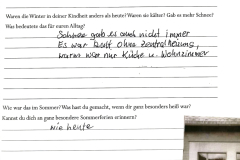 Waren die Winter in deiner Kindheit anders als heute? Waren sie kälter? Gab es mehr Schnee?
Was bedeutete das für euren Alltag?
Schnee gab es auch nicht immer
Es war halt ohne Zentralheizung,
warm war nur Küche u. Wohnzimmer
Wie war das im Sommer? Was hast du gemacht, wenn dir ganz besonders heiß war?
Kannst du dich an ganz besondere Sommerferien erinnern?
wie heute